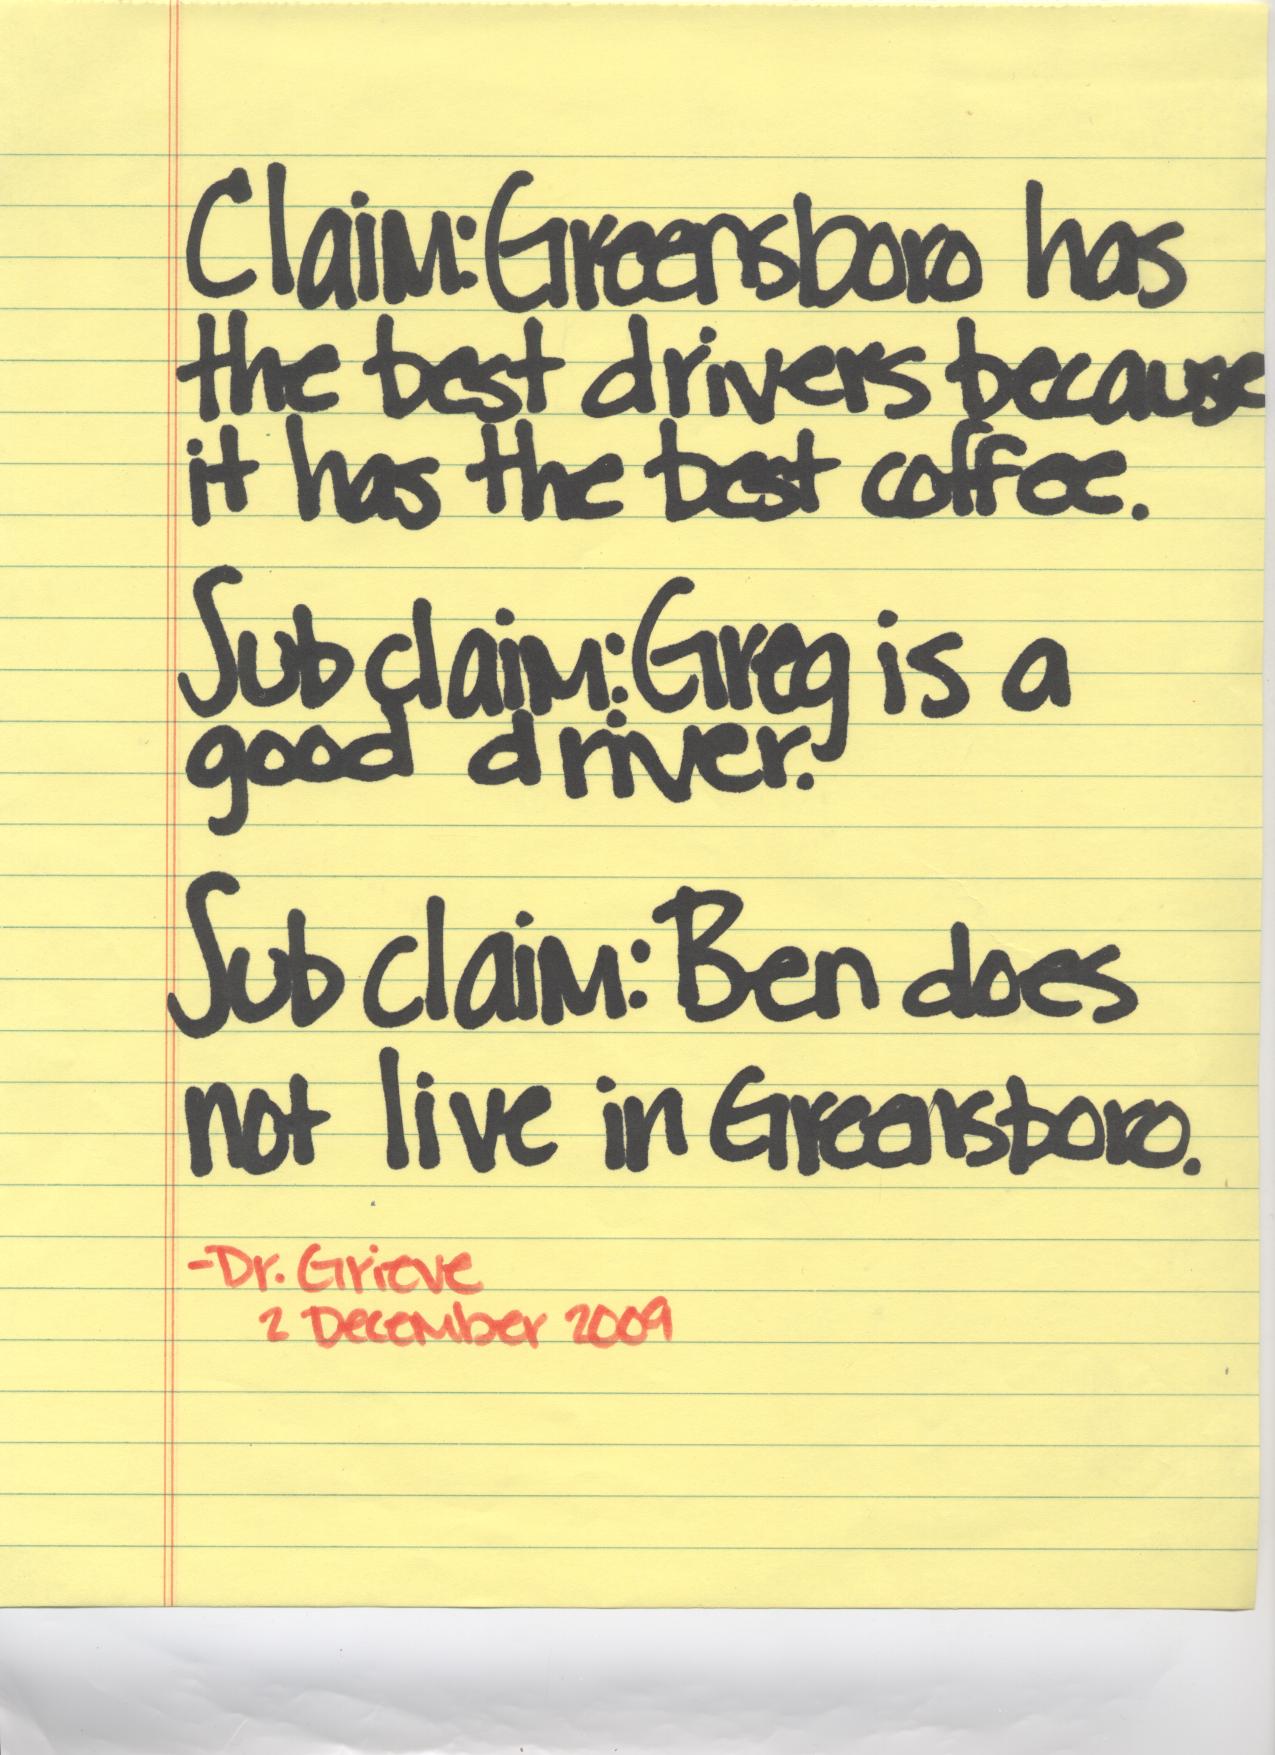 Claim: Greensboro has
the best drivers because
it has the best coffee.
Subclaim: Greg is a
good driver.
Subclaim: Ben does
not live in Greensboro.
-Dr. Grieve
2 December 2009